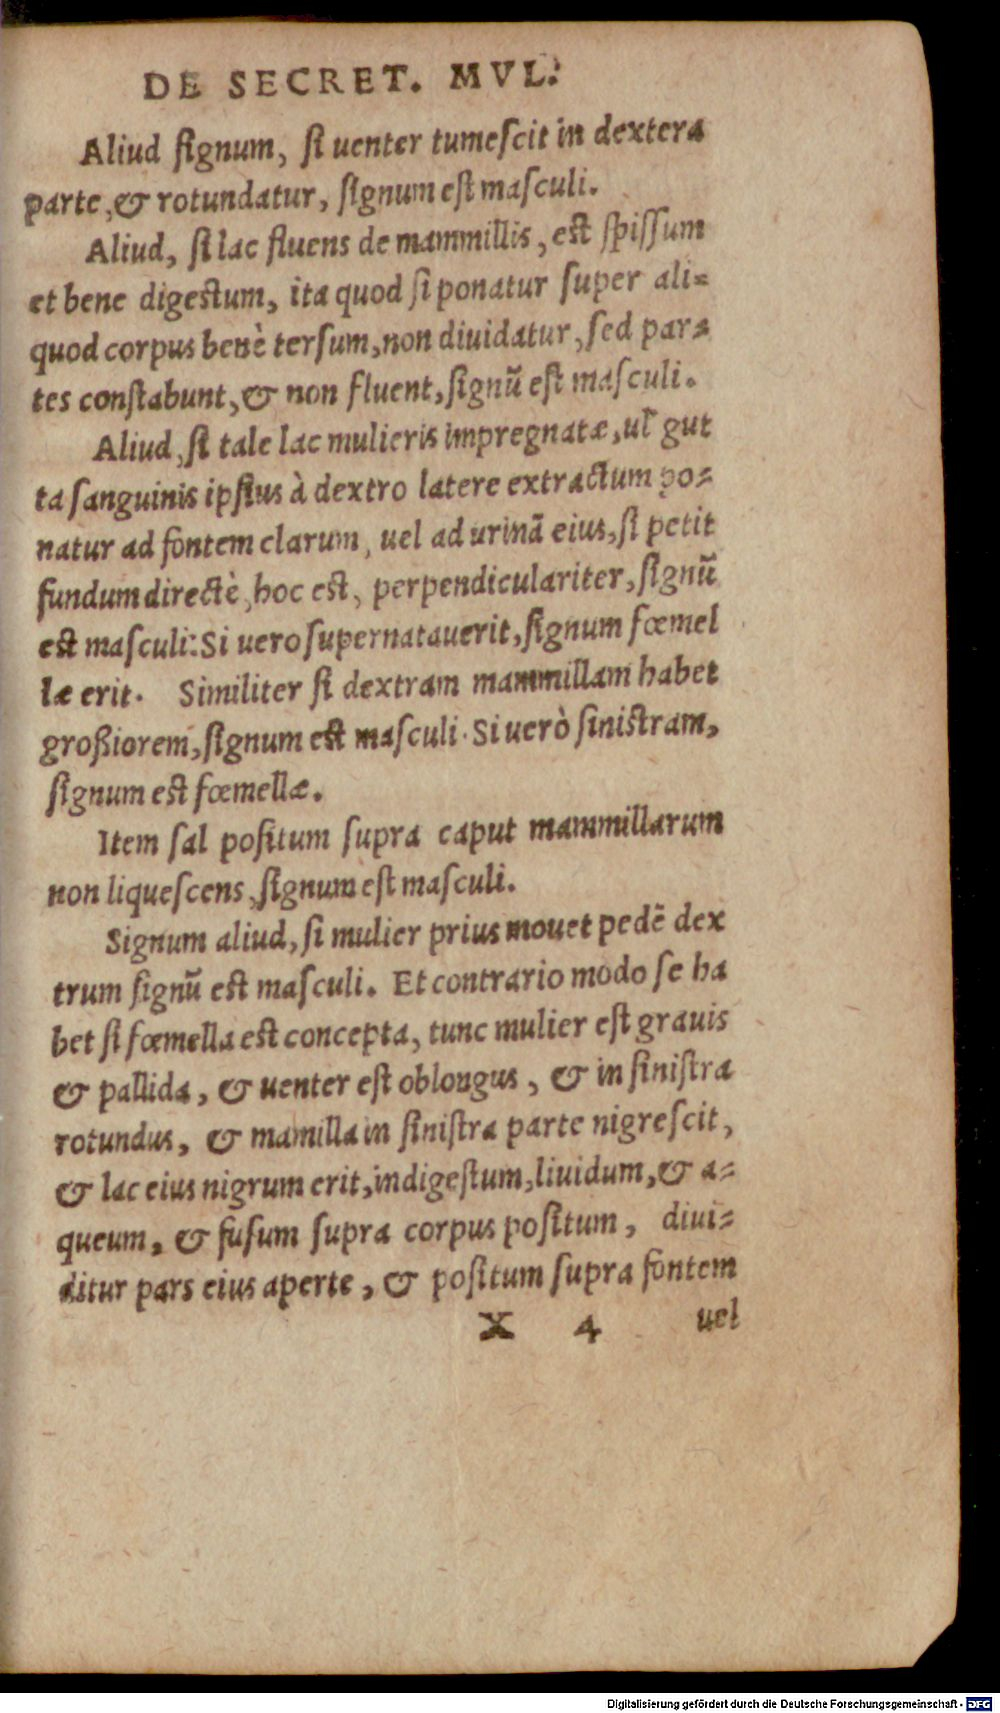 DE SECRET. MVL.
Aliud ſignum, ſi uenter tumeſcit in dextera
parte, & rotundatur, ſignum eſt maſculi.
Aliud, ſi lac fluens de mammillis, eſt ſpiſſum
et bene digeſtum, ita quod ſi ponatur ſuper ali⸗
quod corpus benè terſum, non diuidatur, ſed par⸗
tes conſtabunt, & non fluent, ſignũ eſt maſculi.
Aliud, ſi tale lac mulieris impregnatæ, ul̃ gut
ta ſanguinis ipſius à dextro latere extractum po⸗
natur ad fontem clarum, uel ad urinã eius, ſi petit
fundum directè, hoc eſt, perpendiculariter, ſignũ
eſt maſculi: Si uero ſupernatauerit, ſignum fœmel
læ erit. Similiter ſi dextram mammillam habet
großiorem, ſignum eſt maſculi. Si uerò ſiniſtram,
ſignum eſt fœmellæ.
Item ſal poſitum ſupra caput mammillarum
non liqueſcens, ſignum eſt maſculi.
Signum aliud, ſi mulier prius mouet pedẽ dex
trum ſignũ eſt maſculi. Et contrario modo ſe ha
bet ſi fœmella eſt concepta, tunc mulier eſt grauis
& pallida, & uenter eſt oblongus, & in ſiniſtra
rotundus, & mamilla in ſiniſtra parte nigreſcit,
& lac eius nigrum erit, indigeſtum, liuidum, & a⸗
queum, & fuſum ſupra corpus poſitum, diui⸗
ditur pars eius aperte, & poſitum ſupra fontem
X 4 uel
Digitalisierung gefördert durch die Deutsche Forschungsgemeinschaft - DFG